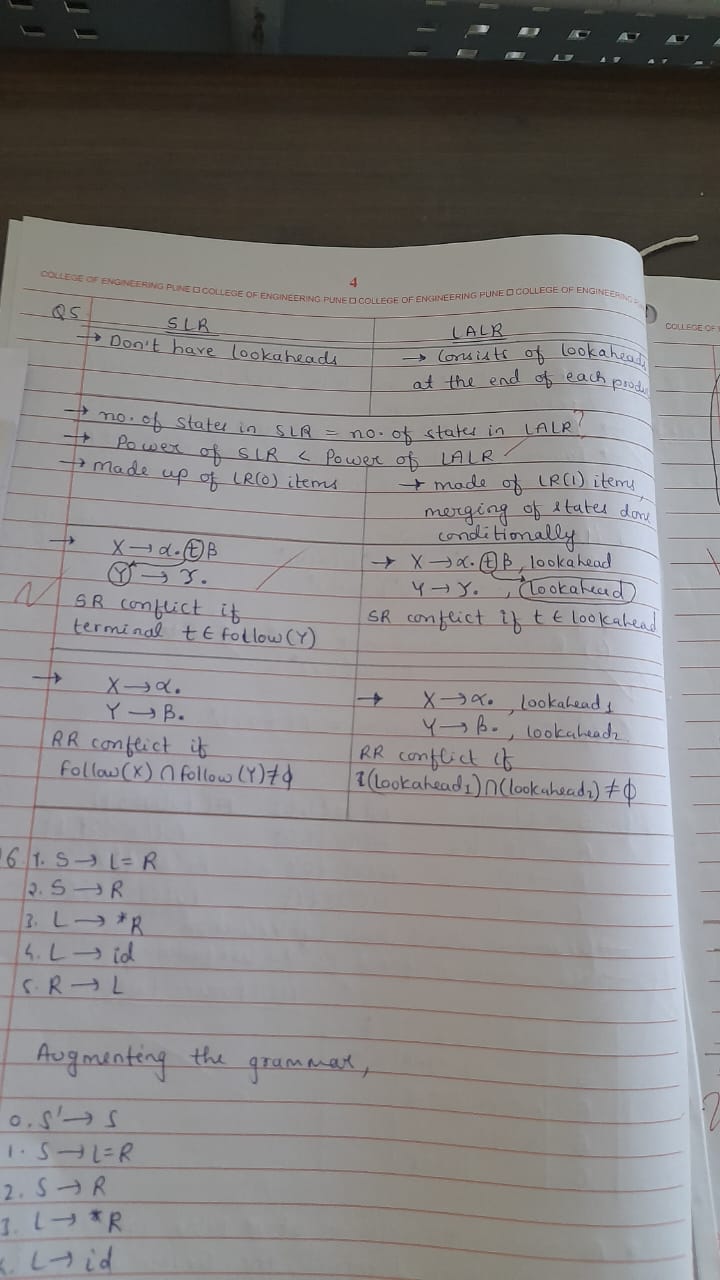 4
COLLEGE OF ENGINEERING PUNE □ COLLEGE OF ENGINEERING PUNE □ COLLEGE OF ENGINEERING PUNE □ COLLEGE OF ENGINEERING
COLLEGE OF
Q5 SLR LALR
→ Don't have lookaheads → Consists of lookaheads
at the end of each
→ no. of states in SLR = no. of states in LALR ?
→ Power of SLR < Power of LALR
→ made up of LR(0) items → made of LR(1) items,
merging of states done
conditionally
→ X → α.tβ → X → α.tβ, lookahead
Y → γ. Y → γ. , lookahead
SR conflict if SR conflict if t ∈ lookahead
terminal t ∈ follow(Y)
→ X → α. → X → α. , lookahead1
Y → β. Y → β. , lookahead2
RR conflict if RR conflict if
follow(X) ∩ follow(Y) ≠ ϕ (lookahead1) ∩ (lookahead2) ≠ ϕ
6 1. S → L = R
2. S → R
3. L → *R
4. L → id
5. R → L
Augmenting the grammar,
0. S' → S
1. S → L = R
2. S → R
3. L → *R
L → id